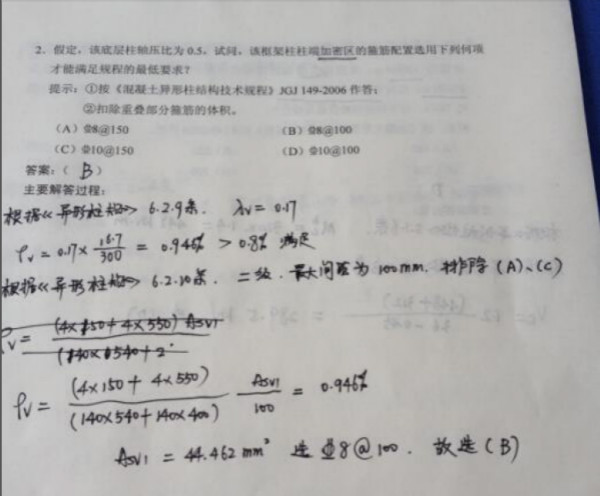 2. 假定，该底层柱轴压比为 0.5，试问，该框架柱柱端加密区的箍筋配置选用下列何项
才能满足规程的最低要求？
提示：①按《混凝土异形柱结构技术规程》JGJ 149-2006 作答；
②扣除重叠部分箍筋的体积。
(A) ⌀8@150
(B) ⌀8@100
(C) ⌀10@150
(D) ⌀10@100
答案：( B )
主要解答过程：
根据《异形柱规》6.2.9条. λv = 0.17
ρv = 0.17 × 16.7/300 = 0.946% > 0.8% 满足
根据《异形柱规》6.2.10条. 二级. 最大间距为 100mm. 排除 (A)、(C)
ρv = (4×150 + 4×550) Asv1 / (140×540 + 2
ρv = (4×150 + 4×550) / (140×540 + 140×400) Asv1/100 = 0.946%
Asv1 = 44.462 mm² 选 ⌀8@100. 故选 (B)